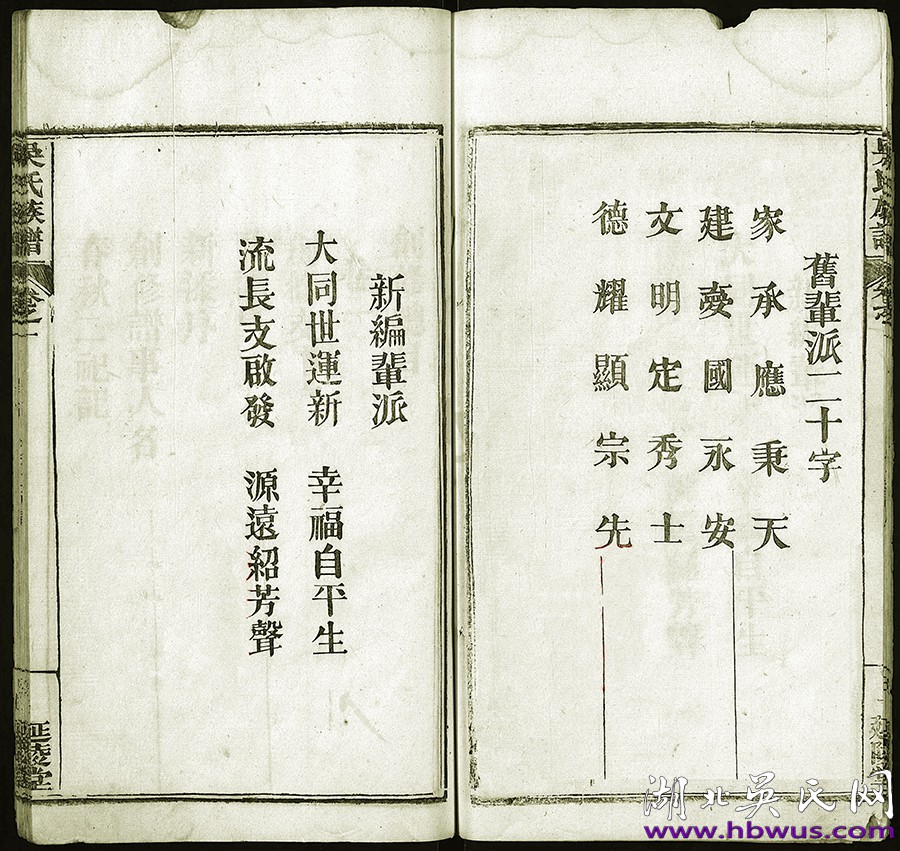 舊輩派二十字
家承應秉天
建憂國永安
文明定秀士
德耀顯宗先
新編輩派
大同世運新 幸福自平生
流長支啟發 源遠紹芳聲
吳氏族譜
卷之一
延陵堂
吳氏族譜
卷之一
延陵堂
湖北吴氏网
www.hbwus.com